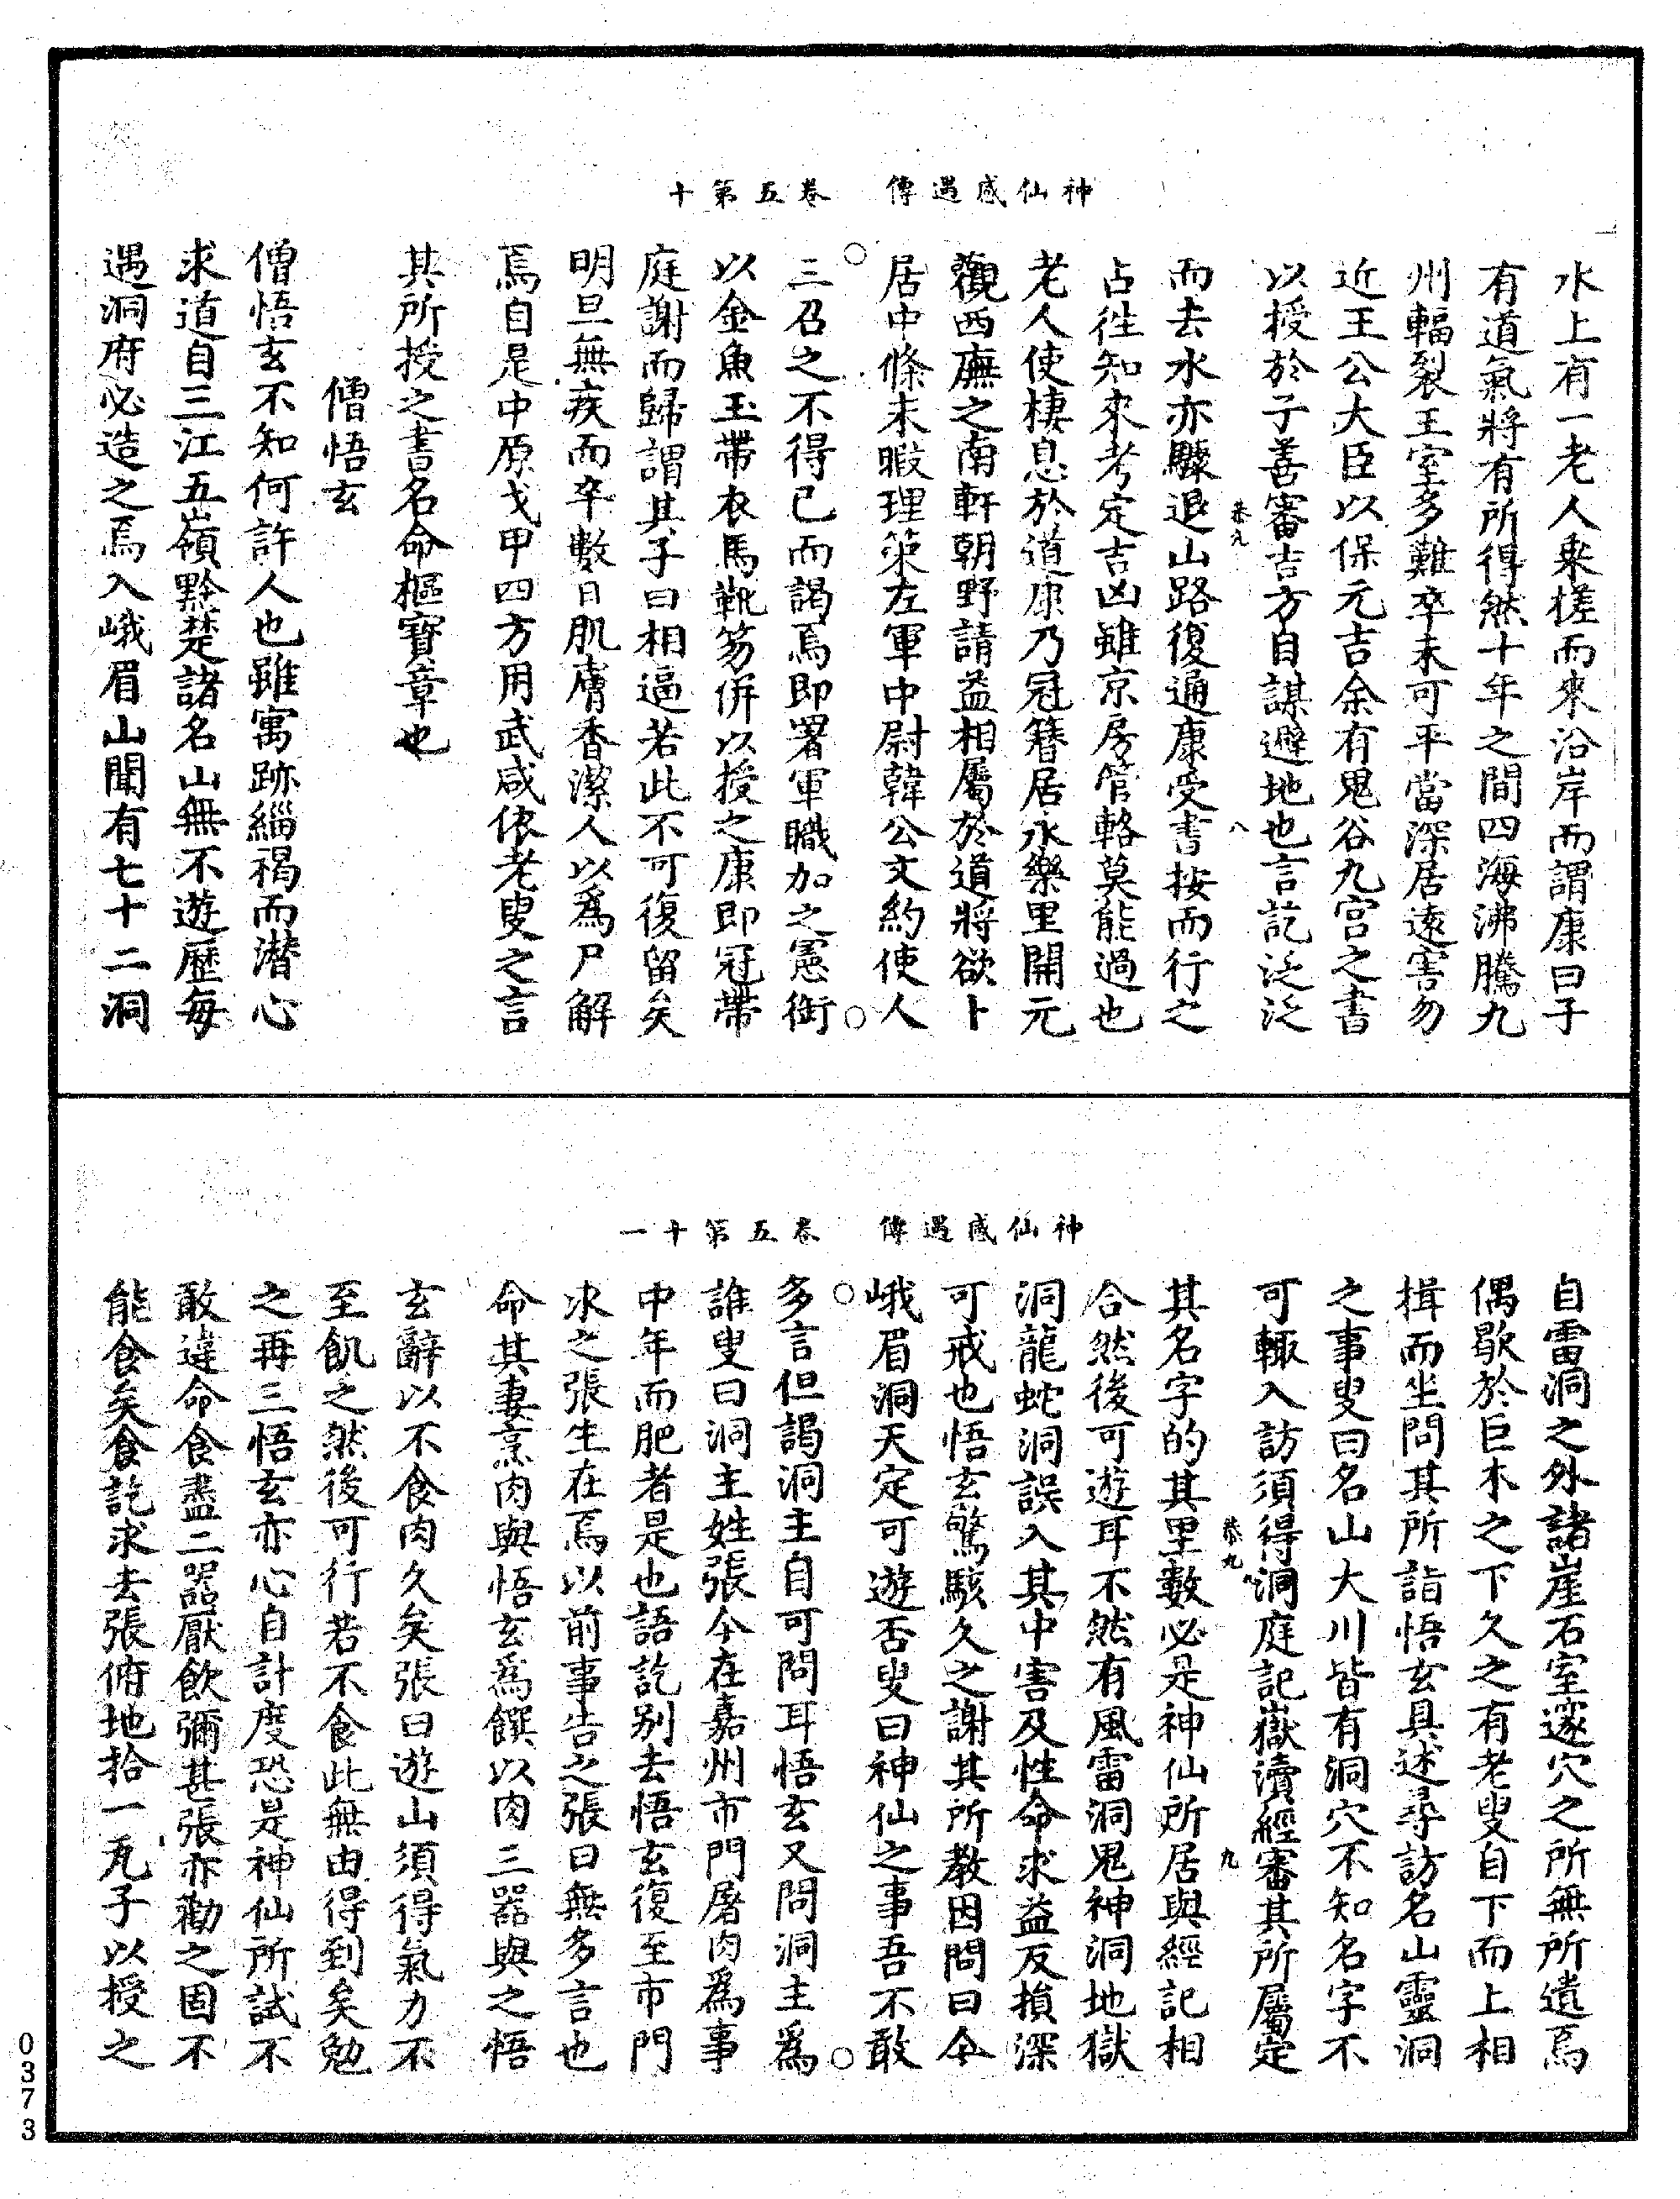 神仙感遇傳　卷五第十
水上有一老人乘槎而來沿岸而謂康曰子
有道氣將有所得然十年之間四海沸騰九
州輻裂王室多難卒未可平當深居遠害勿
近王公大臣以保元吉余有鬼谷九宮之書
以授於子善審吉方自謀避地也言訖泛泛
恭九　八
而去水亦驟退山路復通康受書按而行之
占往知來考定吉凶雖京房管輅莫能過也
老人使棲息於道康乃冠簪居永樂里開元
觀西廡之南軒朝野請益相屬於道將欲卜
居中條未暇理策左軍中尉韓公文約使人
三召之不得已而謁焉即署軍職加之憲銜
以金魚玉帶衣馬靴笏併以授之康即冠帶
庭謝而歸謂其子曰相逼若此不可復留矣
明旦無疾而卒數日肌膚香潔人以爲尸解
焉自是中原戈甲四方用武咸依老叟之言
其所授之書名命樞寶章也
僧悟玄
僧悟玄不知何許人也雖寓跡緇褐而潛心
求道自三江五嶺黔楚諸名山無不遊歷每
遇洞府必造之焉入峨眉山聞有七十二洞
神仙感遇傳　卷五第十一
自雷洞之外諸崖石室邃穴之所無所遺焉
偶歇於巨木之下久之有老叟自下而上相
揖而坐問其所詣悟玄具述尋訪名山靈洞
之事叟曰名山大川皆有洞穴不知名字不
可輒入訪須得洞庭記嶽瀆經審其所屬定
恭九　九
其名字的其里數必是神仙所居與經記相
合然後可遊耳不然有風雷洞鬼神洞地獄
洞龍蛇洞誤入其中害及性命求益反損深
可戒也悟玄驚駭久之謝其所教因問曰今
峨眉洞天定可遊否叟曰神仙之事吾不敢
多言但謁洞主自可問耳悟玄又問洞主爲
誰叟曰洞主姓張今在嘉州市門屠肉爲事
中年而肥者是也語訖別去悟玄復至市門
求之張生在焉以前事告之張曰無多言也
命其妻烹肉與悟玄爲饌以肉三器與之悟
玄辭以不食肉久矣張曰遊山須得氣力不
至飢乏然後可行若不食此無由得到矣勉
之再三悟玄亦心自計度恐是神仙所試不
敢違命食盡二器厭飲彌甚張亦勸之固不
能食矣食訖求去張俯地拾一瓦子以授之
0373